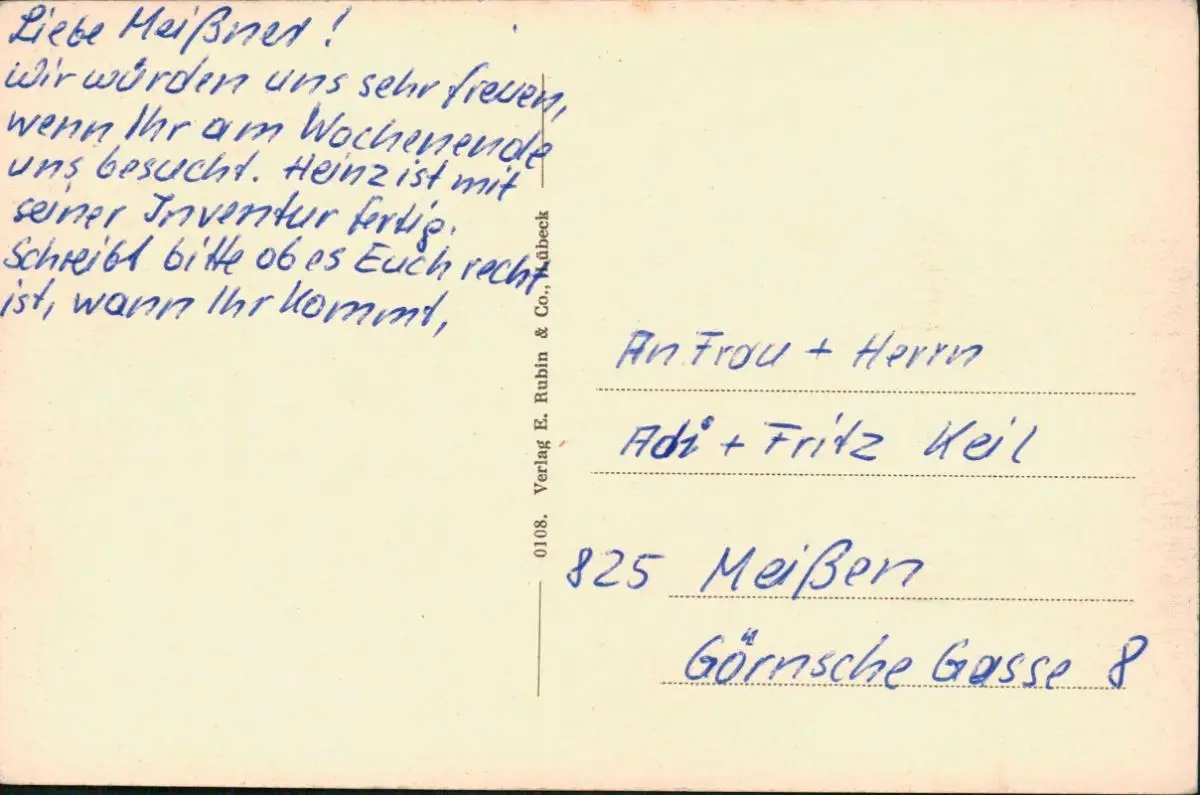 Liebe Meißner!
Wir würden uns sehr freuen,
wenn Ihr am Wochenende
uns besucht. Heinz ist mit
seiner Inventur fertig.
Schreibt bitte ob es Euch recht
ist, wann Ihr kommt,
0108. Verlag E. Rubin & Co., Lübeck
An Frau + Herrn
Adi + Fritz Keil
825 Meißen
Görnsche Gasse 8